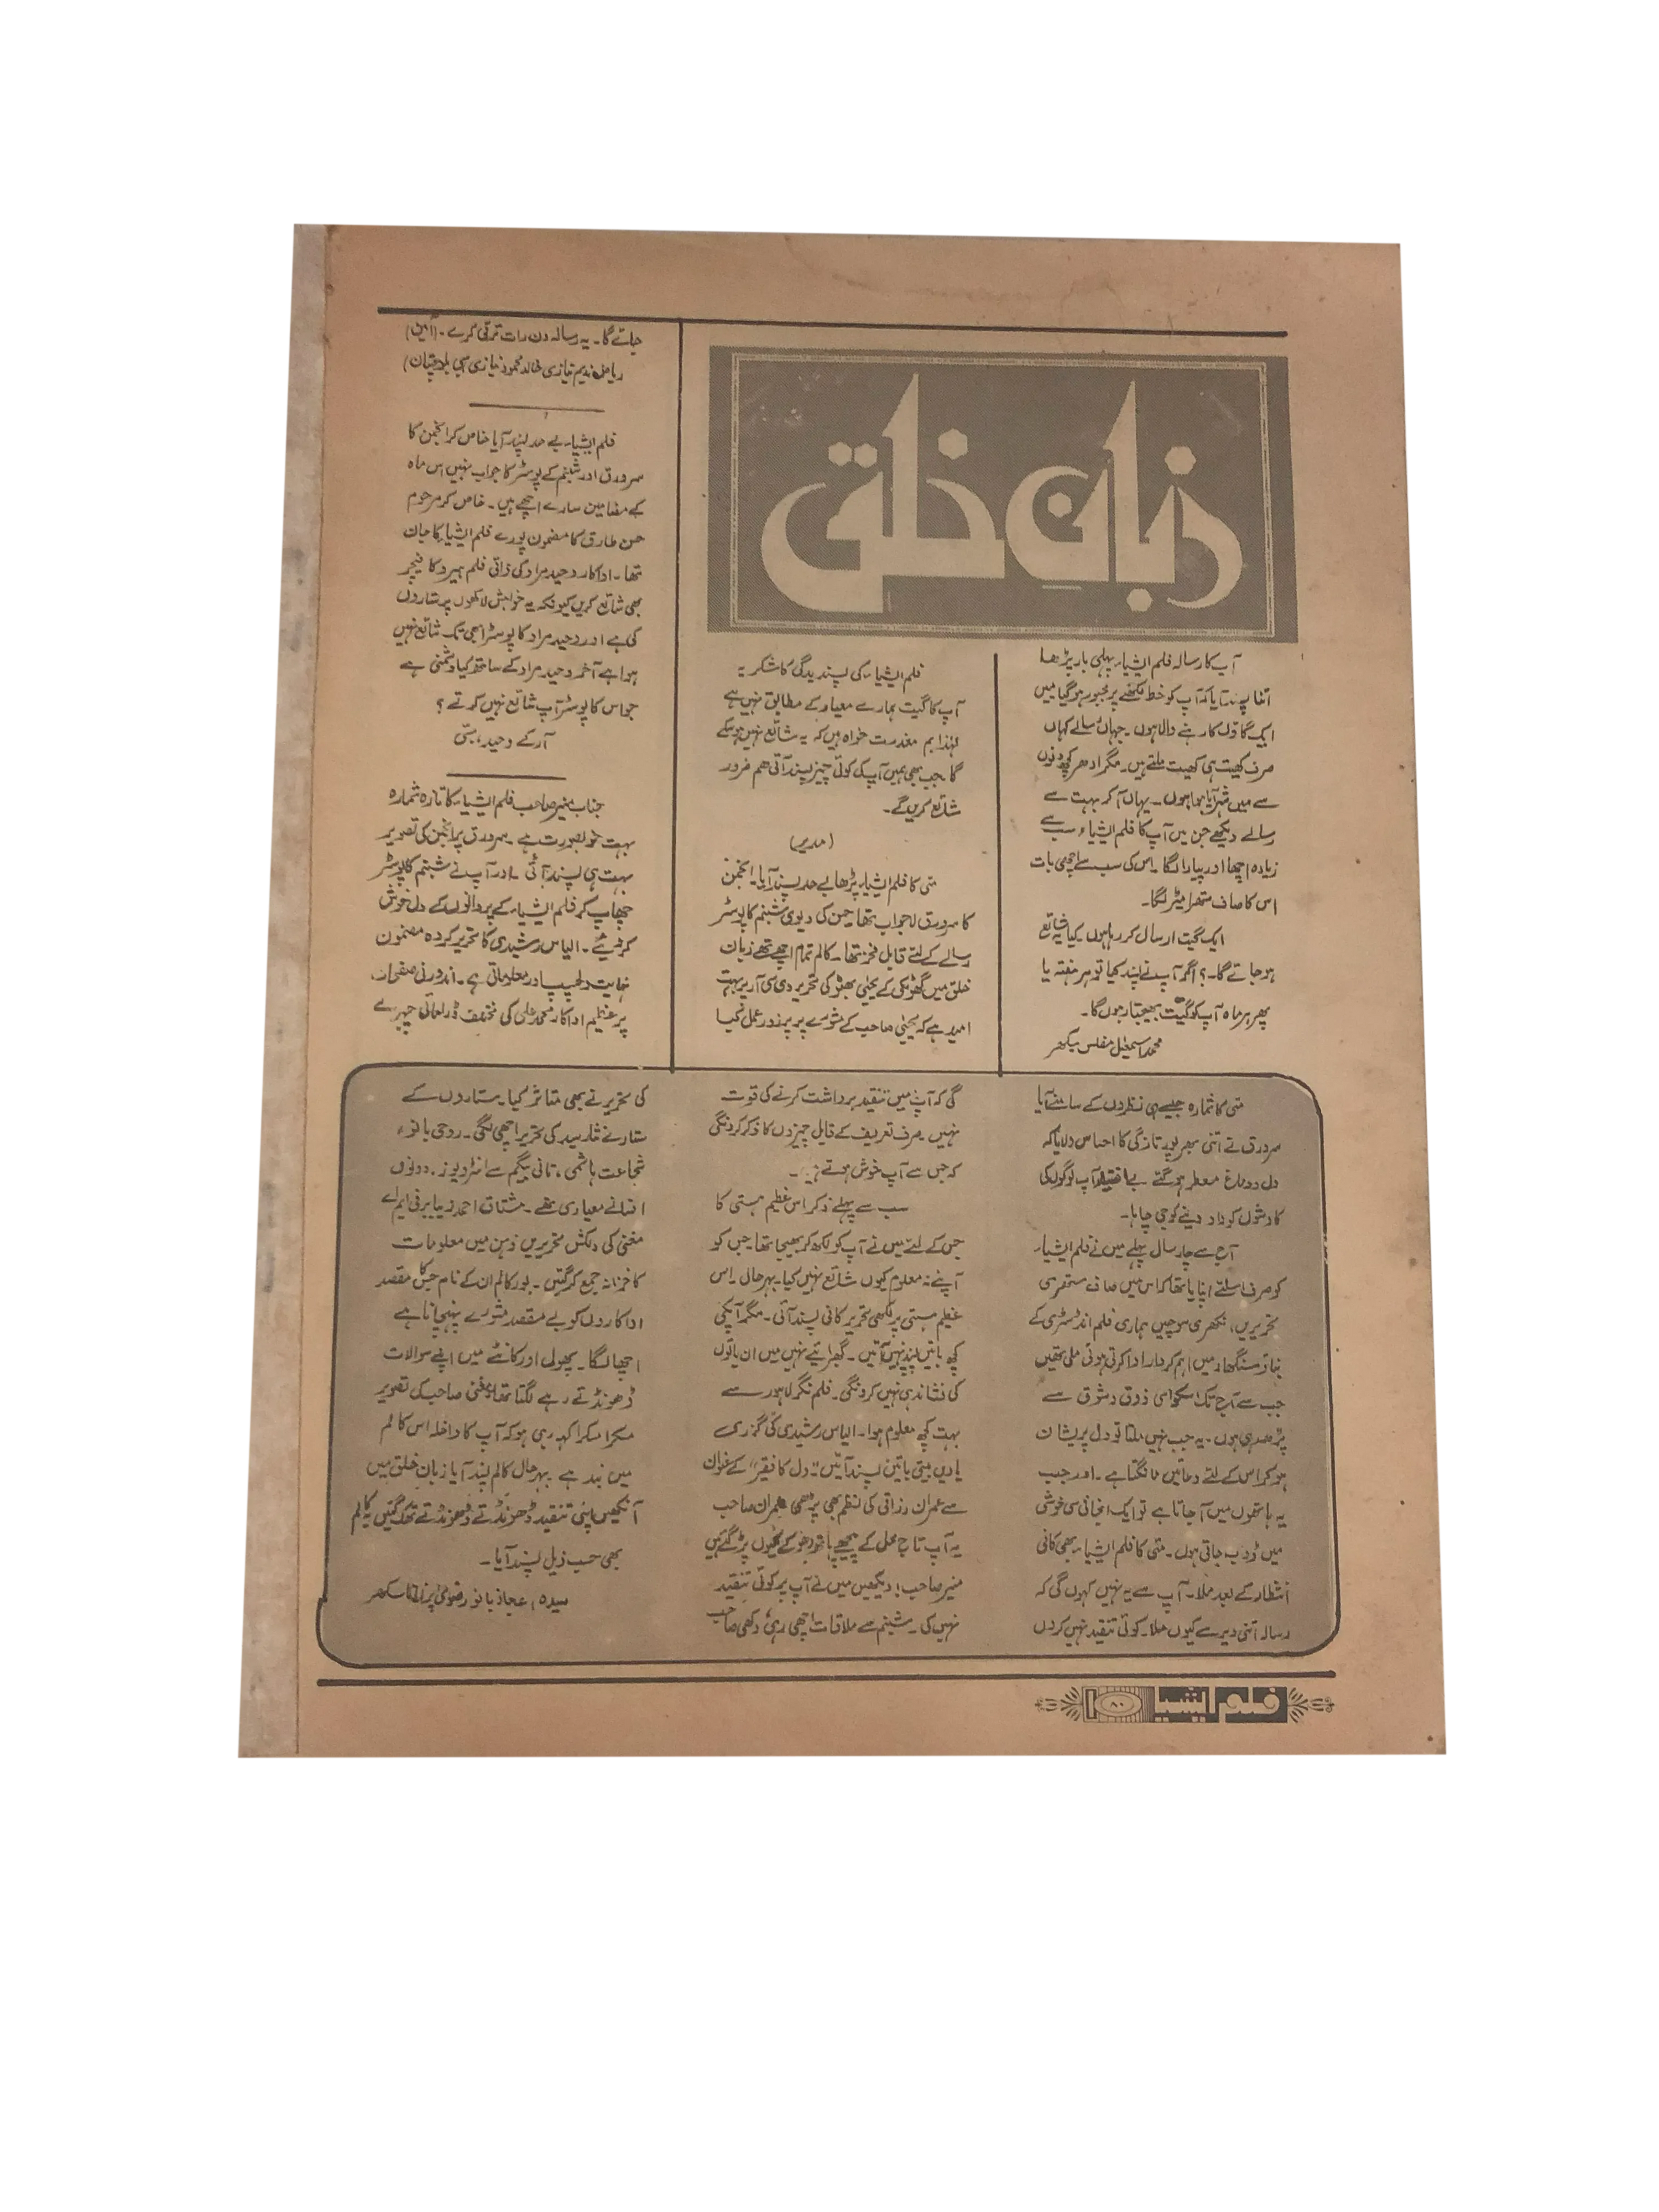 زبان خلق
آپ کا رسالہ فلم ایشیاء پہلی بار پڑھا
اتنا پسند آیا کہ آپ کو خط لکھنے پر مجبور ہو گیا میں
ایک گاؤں کا رہنے والا ہوں۔ جہاں رسالے کہاں
صرف کھیت ہی کھیت ملتے ہیں۔ مگر ادھر کچھ دنوں
سے میں شہر آیا ہوا ہوں۔ یہاں آ کر بہت سے
رسالے دیکھے جن میں آپ کا فلم ایشیاء سب سے
زیادہ اچھا اور پیارا لگا۔ اس کی سب سے اچھی بات
اس کا صاف ستھرا میٹر لگا۔
ایک گیت ارسال کر رہا ہوں کیا یہ شائع
ہو جائے گا۔؟ اگر آپ نے پسند کیا تو ہر ہفتہ یا
پھر ہر ماہ آپ کو گیت بھیجتا رہوں گا۔
محمد اسمعیل مفلس
فلم ایشیاء کی پسندیدگی کا شکریہ
آپ کا گیت ہمارے معیار کے مطابق نہیں ہے
لہٰذا ہم معذرت خواہ ہیں کہ یہ شائع نہیں ہو سکے
گا۔ جب بھی ہمیں آپ کی کوئی چیز پسند آئی ہم ضرور
شائع کریں گے۔
(مدیر)
مئی کا فلم ایشیاء پڑھا بے حد پسند آیا۔ انجمن
کا سرورق لاجواب تھا۔ حسن کی دیوی شبنم کا پوسٹر
رسالے کے لئے قابل فخر تھا۔ کالم تمام اچھے تھے زبان
خلق میں گھوٹکی کے یحییٰ بھٹو کی تحریر دی سی آر پر بہت
امید ہے کہ یحییٰ صاحب کے مشورے پر پرزور عمل کیا
جائے گا۔ یہ رسالہ دن رات ترقی کرے۔ (آمین)
ریاض ندیم نیازی خالد محمود نیازی سبی بلوچستان)
فلم ایشیاء بے حد پسند آیا خاص کر انجمن کا
سرورق اور شبنم کے پوسٹر کا جواب نہیں اس ماہ
کے مضامین سارے اچھے ہیں۔ خاص کر مرحوم
حسن طارق کا مضمون پورے فلم ایشیاء کا جان
تھا۔ اداکار وحید مراد کی ذاتی فلم ہیرو کا فیچر
بھی شائع کریں کیونکہ یہ خواہش لاکھوں پرستاروں
کی ہے اور وحید مراد کا پوسٹر ابھی تک شائع نہیں
ہوا ہے آخر وحید مراد کے ساتھ کیا دشمنی ہے
جو اس کا پوسٹر آپ شائع نہیں کرتے؟
آر کے وحید، سبّی
جناب منیر صاحب فلم ایشیاء کا تازہ شمارہ
بہت خوبصورت ہے۔ سرورق پر انجمن کی تصویر
بہت ہی پسند آئی۔ اور آپ نے شبنم کا پوسٹر
چھاپ کر فلم ایشیاء کے پروانوں کے دل خوش
کر دیئے۔ الیاس رشیدی کا تحریر کردہ مضمون
نہایت دلچسپ اور معلوماتی ہے۔ اندرونی صفحات
پر عظیم اداکار محمد علی کی مختلف ڈرامائی چہرے
مئی کا شمارہ جیسے ہی نظروں کے سامنے آیا
سرورق نے اتنی بھرپور تازگی کا احساس دلایا کہ
دل و دماغ معطر ہو گئے بے اختیار آپ لوگوں کی
کاوشوں کو داد دینے کو جی چاہا۔
آج سے چار سال پہلے میں نے فلم ایشیاء
کو صرف اسلئے اپنایا تھا کہ اس میں صاف ستھری
تحریریں، نکھری سوچیں ہماری فلم انڈسٹری کے
بناؤ سنگھار میں اہم کردار ادا کرتی ہوئی ملی تھیں
جب سے آج تک اسکو اسی ذوق و شوق سے
پڑھ رہی ہوں۔ یہ جب نہیں ملتا تو دل پریشان
ہو کر اس کے لئے دعائیں مانگتا ہے۔ اور جب
یہ ہاتھوں میں آ جاتا ہے تو ایک انجانی سی خوشی
میں ڈوب جاتی ہوں۔ مئی کا فلم ایشیاء بھی کافی
انتظار کے بعد ملا۔ آپ سے یہ نہیں کہوں گی کہ
رسالہ اتنی دیر سے کیوں ملا۔ کوئی تنقید نہیں کروں
گی کہ آپ میں تنقید برداشت کرنے کی قوت
نہیں۔ صرف تعریف کے قابل چیزوں کا ذکر کرونگی
کہ جس سے آپ خوش ہوتے ہیں۔
سب سے پہلے ذکر اس عظیم ہستی کا
جس کے لئے میں نے آپ کو لکھ کر بھیجا تھا۔ جس کو
آپنے نہ معلوم کیوں شائع نہیں کیا۔ بہرحال۔ اس
عظیم ہستی پر لکھی تحریر کافی پسند آئی۔ مگر آپکی
کچھ باتیں پسند نہیں آئیں۔ گھبرائیے نہیں میں ان باتوں
کی نشاندہی نہیں کرونگی۔ فلم نگر لاہور سے
بہت کچھ معلوم ہوا۔ الیاس رشیدی کی گزری
یادیں بیتی باتیں پسند آئیں۔ "دل کا فقیر" کے عنوان
سے عمران رزاقی کی نظم بھی پڑھی عمران صاحب
یہ آپ تاج محل کے پیچھے ہاتھ دھو کے کیوں پڑ گئے ہیں
منیر صاحب! دیکھیں میں نے آپ پر کوئی تنقید
نہیں کی۔ شبنم سے ملاقات اچھی رہی، دکھی صاحب
کی تحریر نے بھی متاثر کیا۔ ستاروں کے
ستارے نثار سید کی تحریر اچھی لگی۔ روحی بانو،
شجاعت ہاشمی، تانی بیگم سے انٹرویوز۔ دونوں
افسانے معیاری تھے۔ مشتاق احمد ایم اے
مغنی کی دلکش تحریریں ذہن میں معلومات
کا خزانہ جمع کر گئیں۔ اور کالم ان کے نام جس کا مقصد
اداکاروں کو بے مقصد مشورے پہنچانا ہے
اچھا لگا۔ پھول اور کانٹے میں اپنے سوالات
ڈھونڈتے رہے لگتا تھا مغنی صاحب کی تصویر
مسکرا مسکرا کہہ رہی ہو کہ آپ کا داخلہ اس کالم
میں بند ہے بہرحال کالم پسند آیا زبان خلق میں
آنکھیں اپنی تنقید ڈھونڈتے ڈھونڈتے تھک گئیں یہ کالم
بھی حسب ذیل پسند آیا۔
سیدہ اعجاز بانو رضوی سکھر
فلم ایشیا ۸۰